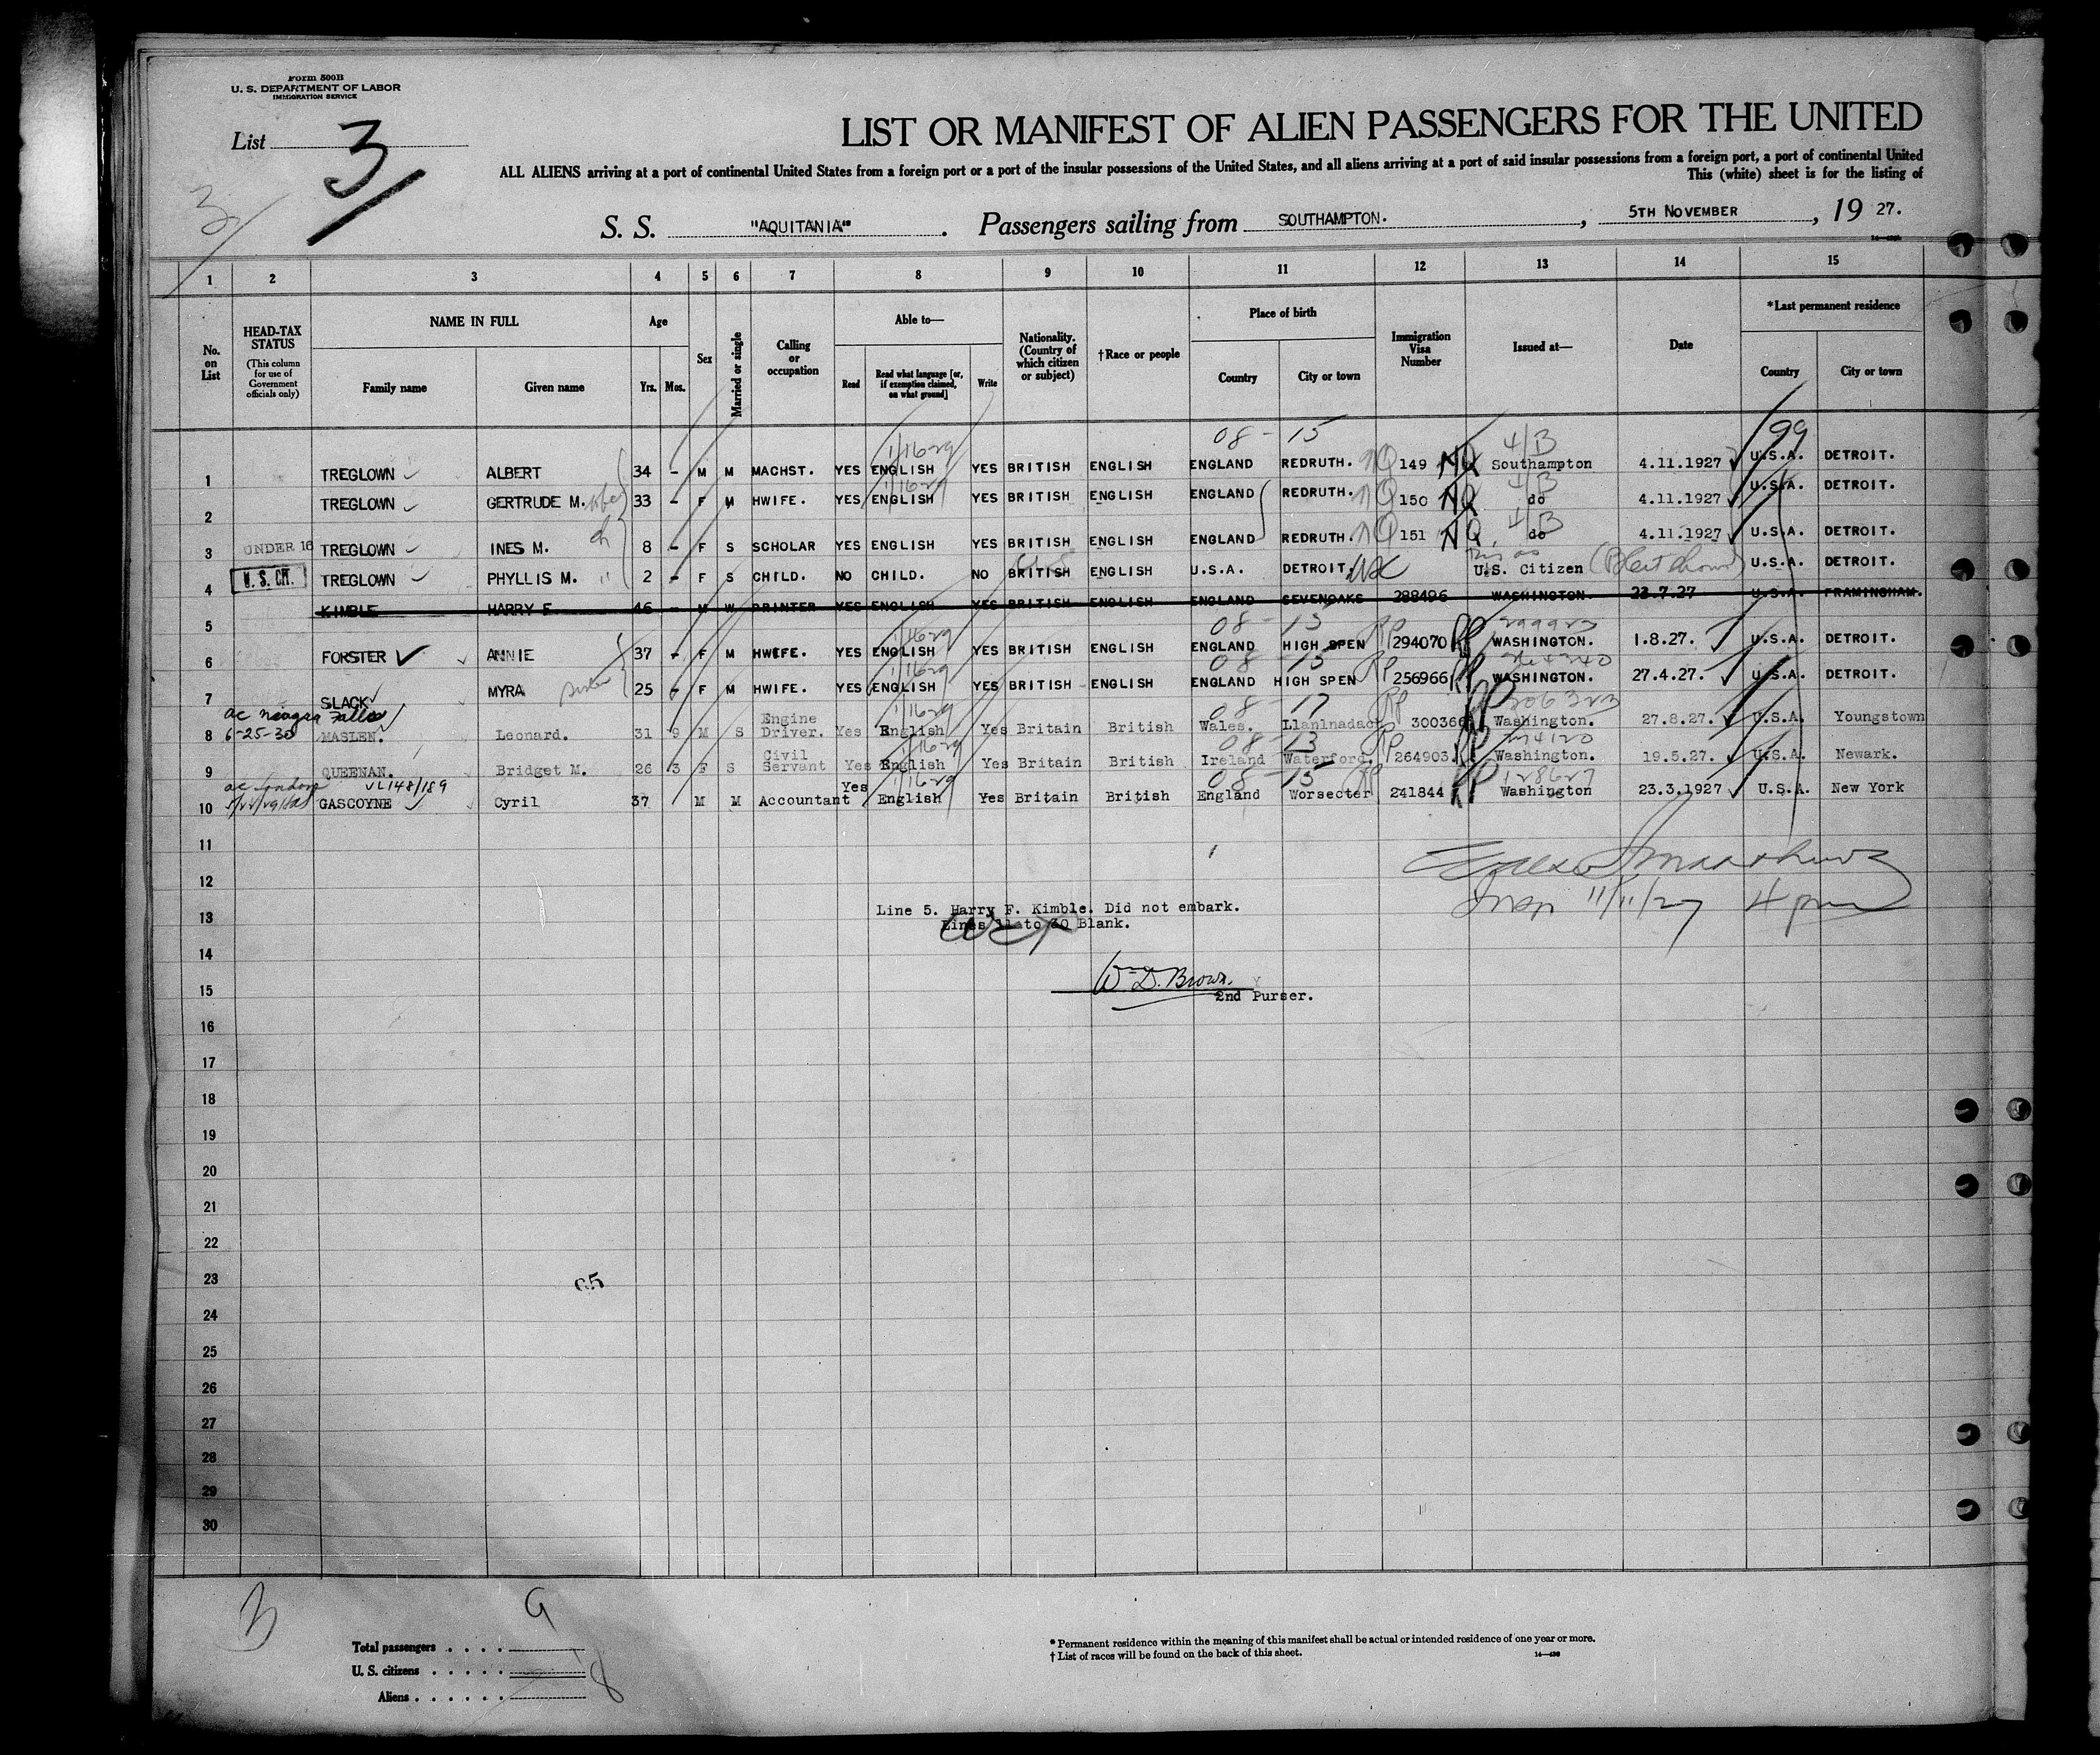 Form 500B
U. S. DEPARTMENT OF LABOR
IMMIGRATION SERVICE
List 3
3
LIST OR MANIFEST OF ALIEN PASSENGERS FOR THE UNITED
ALL ALIENS arriving at a port of continental United States from a foreign port or a port of the insular possessions of the United States, and all aliens arriving at a port of said insular possessions from a foreign port, a port of continental United
This (white) sheet is for the listing of
S. S. "AQUITANIA" . Passengers sailing from SOUTHAMPTON. , 5TH NOVEMBER , 19 27.
1 2 3 4 5 6 7 8 9 10 11 12 13 14 15
No. on List
HEAD-TAX STATUS
(This column for use of Government officials only)
NAME IN FULL
Family name Given name
Age
Yrs. Mos.
Sex
Married or single
Calling or occupation
Able to—
Read Read what language [or, if exemption claimed, on what ground] Write
Nationality. (Country of which citizen or subject)
†Race or people
Place of birth
Country City or town
Immigration Visa Number
Issued at—
Date
*Last permanent residence
Country City or town
08-15 4/B 99
1 TREGLOWN ALBERT 34 - M M MACHST. YES ENGLISH YES BRITISH ENGLISH ENGLAND REDRUTH. NQ 149 NQ Southampton 4.11.1927 U.S.A. DETROIT.
2 TREGLOWN GERTRUDE M. 33 - F M HWIFE. YES ENGLISH YES BRITISH ENGLISH ENGLAND REDRUTH. NQ 150 NQ do 4.11.1927 U.S.A. DETROIT.
3 UNDER 16 TREGLOWN INES M. ch 8 - F S SCHOLAR YES ENGLISH YES BRITISH ENGLISH ENGLAND REDRUTH. NQ 151 NQ do 4.11.1927 U.S.A. DETROIT.
4 U.S. CIT. TREGLOWN PHYLLIS M. " 2 - F S CHILD. NO CHILD. NO BRITISH ENGLISH U.S.A. DETROIT. U.S. Citizen U.S.A. DETROIT.
5 KIMBLE HARRY F. 46 - M W PRINTER YES ENGLISH YES BRITISH ENGLISH ENGLAND SEVENOAKS 288496 WASHINGTON. 23.7.27 U.S.A. FRAMINGHAM.
6 FORSTER ANNIE 37 - F M HWIFE. YES ENGLISH YES BRITISH ENGLISH ENGLAND HIGH SPEN 294070 RP WASHINGTON. 1.8.27. U.S.A. DETROIT.
7 SLACK MYRA sister 25 - F M HWIFE. YES ENGLISH YES BRITISH ENGLISH ENGLAND HIGH SPEN 256966 RP WASHINGTON. 27.4.27. U.S.A. DETROIT.
ac Niagra Falls
8 6-25-30 MASLEN. Leonard. 31 9 M S Engine Driver. Yes English Yes Britain British Wales. Llanlnadact 300366 RP Washington. 27.8.27. U.S.A. Youngstown
9 QUEENAN. Bridget M. 26 3 F S Civil Servant Yes English Yes Britain British Ireland Waterford. 264903. RP Washington. 19.5.27. U.S.A. Newark.
VL 148/189
10 GASCOYNE Cyril 37 M M Accountant Yes English Yes Britain British England Worsecter 241844 RP Washington 23.3.1927 U.S.A. New York
11
12
13
14
15
16
17
18
19
20
21
22
23
24
25
26
27
28
29
30
Insp 11/11/27 4 pm
Line 5. Harry F. Kimble. Did not embark.
Lines 11 to 30 Blank.
Wm D. Brown.
2nd Purser.
65
3
9
Total passengers
U. S. citizens 1
Aliens 8
* Permanent residence within the meaning of this manifest shall be actual or intended residence of one year or more.
† List of races will be found on the back of this sheet.